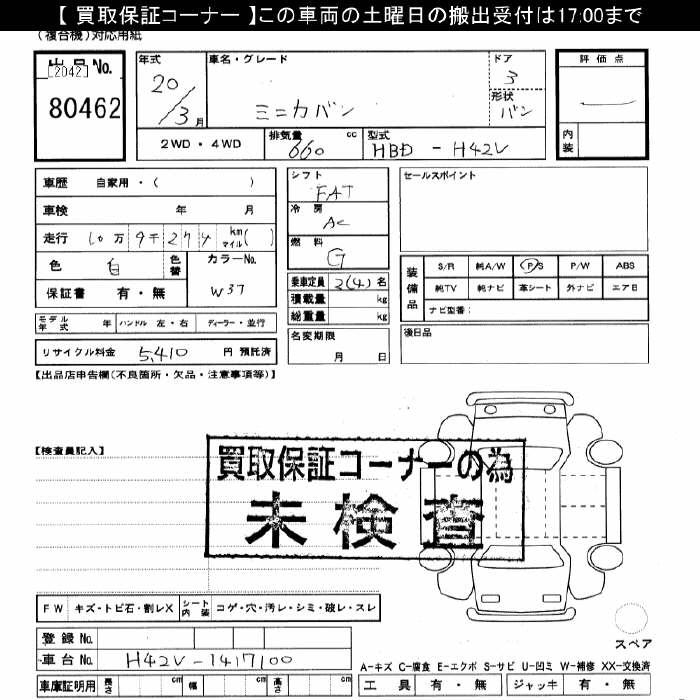 【 買取保証コーナー 】この車両の土曜日の搬出受付は17:00まで
(複合機)対応用紙
出品No.
[2042]
80462
年式
20/3月
車名・グレード
ミニカバン
ドア
3
形状
バン
評価点
内装
2WD・4WD
排気量 660 cc
型式 HBD - H42V
車歴 自家用・( )
車検 年 月
走行 10万 9千 2 7 4 km マイル( )
色 白 色替
カラーNo.
W37
保証書 有・無
シフト
FAT
冷房
AC
燃料
G
乗車定員 2(4) 名
積載量 kg
総重量 kg
名変期限
月 日
セールスポイント
装備品
S/R 純A/W P/S P/W ABS
純TV 純ナビ 革シート 外ナビ エアB
ナビ型番:
後日品
モデル年式 年 ハンドル 左・右 ディーラー・並行
リサイクル料金 5,410 円 預託済
【出品店申告欄(不良箇所・欠品・注意事項等)】
【検査員記入】
買取保証コーナーの為
未検査
FW キズ・トビ石・割レX シート内装 コゲ・穴・汚レ・シミ・破レ・スレ
登録No.
車台No. H42V-1417100
車庫証明用 長さ cm 幅 cm 高さ cm
スペア
A-キズ C-腐食 E-エクボ S-サビ U-凹ミ W-補修 XX-交換済
工具 有・無 ジャッキ 有・無